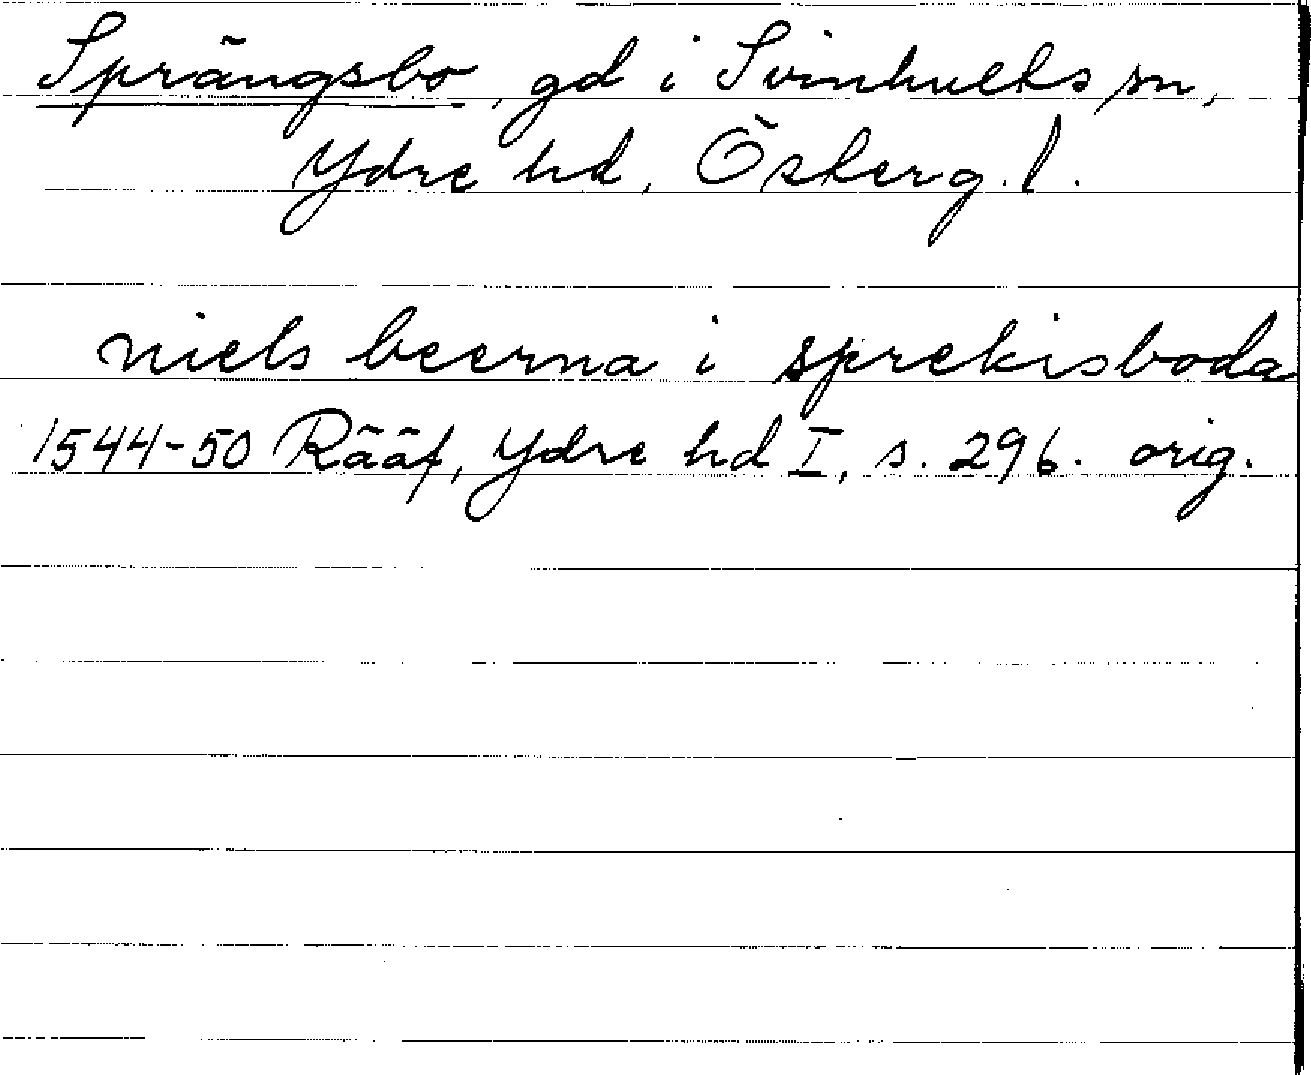 Sprängsbo, gd i Svinhults sn,
Ydre hd, Österg. l.
niels beerna i sprekisboda
1544-50 Rääf, Ydre hd I, s. 296. orig.